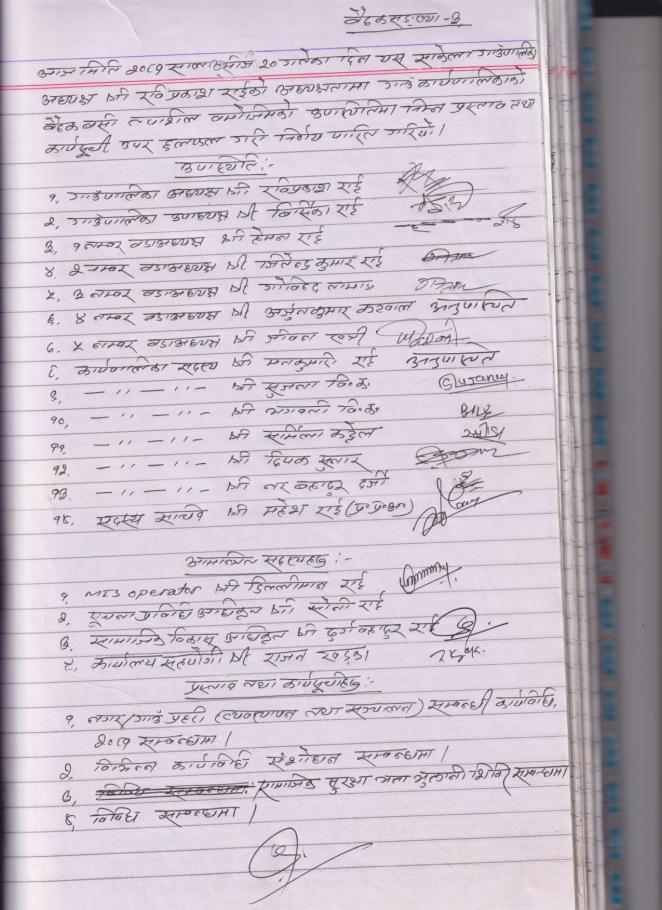 बैठक सङ्ख्या - ३
आज मिति २०८१ साल असोज २० गतेका दिन यस साकेला गाउँपालिका
अध्यक्ष श्री रविप्रकाश राईको अध्यक्षतामा गाउँ कार्यपालिकाको
बैठक बसी तपशिल बमोजिमको उपस्थितिमा निम्न प्रस्ताव तथा
कार्यसूची उपर छलफल गरी निर्णय पारित गरियो।
उपस्थिति:-
१. गाउँपालिका अध्यक्ष श्री रविप्रकाश राई
२. गाउँपालिका उपाध्यक्ष श्री राई
३. १ नम्बर वडाअध्यक्ष श्री हेमन्त राई
४. २ नम्बर वडाअध्यक्ष श्री जितेन्द्र कुमार राई
५. ३ नम्बर वडाअध्यक्ष श्री गोविन्द तामाङ
६. ४ नम्बर वडाअध्यक्ष श्री अर्जुनकुमार करवाल अनुपस्थित
७. ५ नम्बर वडाअध्यक्ष श्री जीवन खत्री
८. कार्यपालिका सदस्य श्री मनकुमारी राई अनुपस्थित
९. - " - " - श्री सुजना वि.क.
१०. - " - " - श्री भगवती वि.क.
११. - " - " - श्री सर्मिला कट्टेल
१२. - " - " - श्री दिपक सुनार
१३. - " - " - श्री नर बहादुर दर्जी
१४. सदस्य सचिव श्री महेश राई (प्र.प्र.अ.)
आमन्त्रित सदस्यहरु:-
१. MIS operator श्री डिल्लीमान राई
२. सूचना प्रविधि अधिकृत श्री राई
३. सामाजिक विकास अधिकृत श्री दुर्गबहादुर राई
४. कार्यालय सहयोगी श्री राजन खड्का
प्रस्ताव तथा कार्यसूचीहरु:-
१. नगर/गाउँ प्रहरी (व्यवस्थापन तथा सञ्चालन) सम्बन्धी कार्यविधि,
२०८१ सम्बन्धमा।
२. विभिन्न कार्यविधि संशोधन सम्बन्धमा।
३. सामाजिक सुरक्षा भत्ता भुक्तानी शिविर सम्बन्धमा
४. विविध सम्बन्धमा।